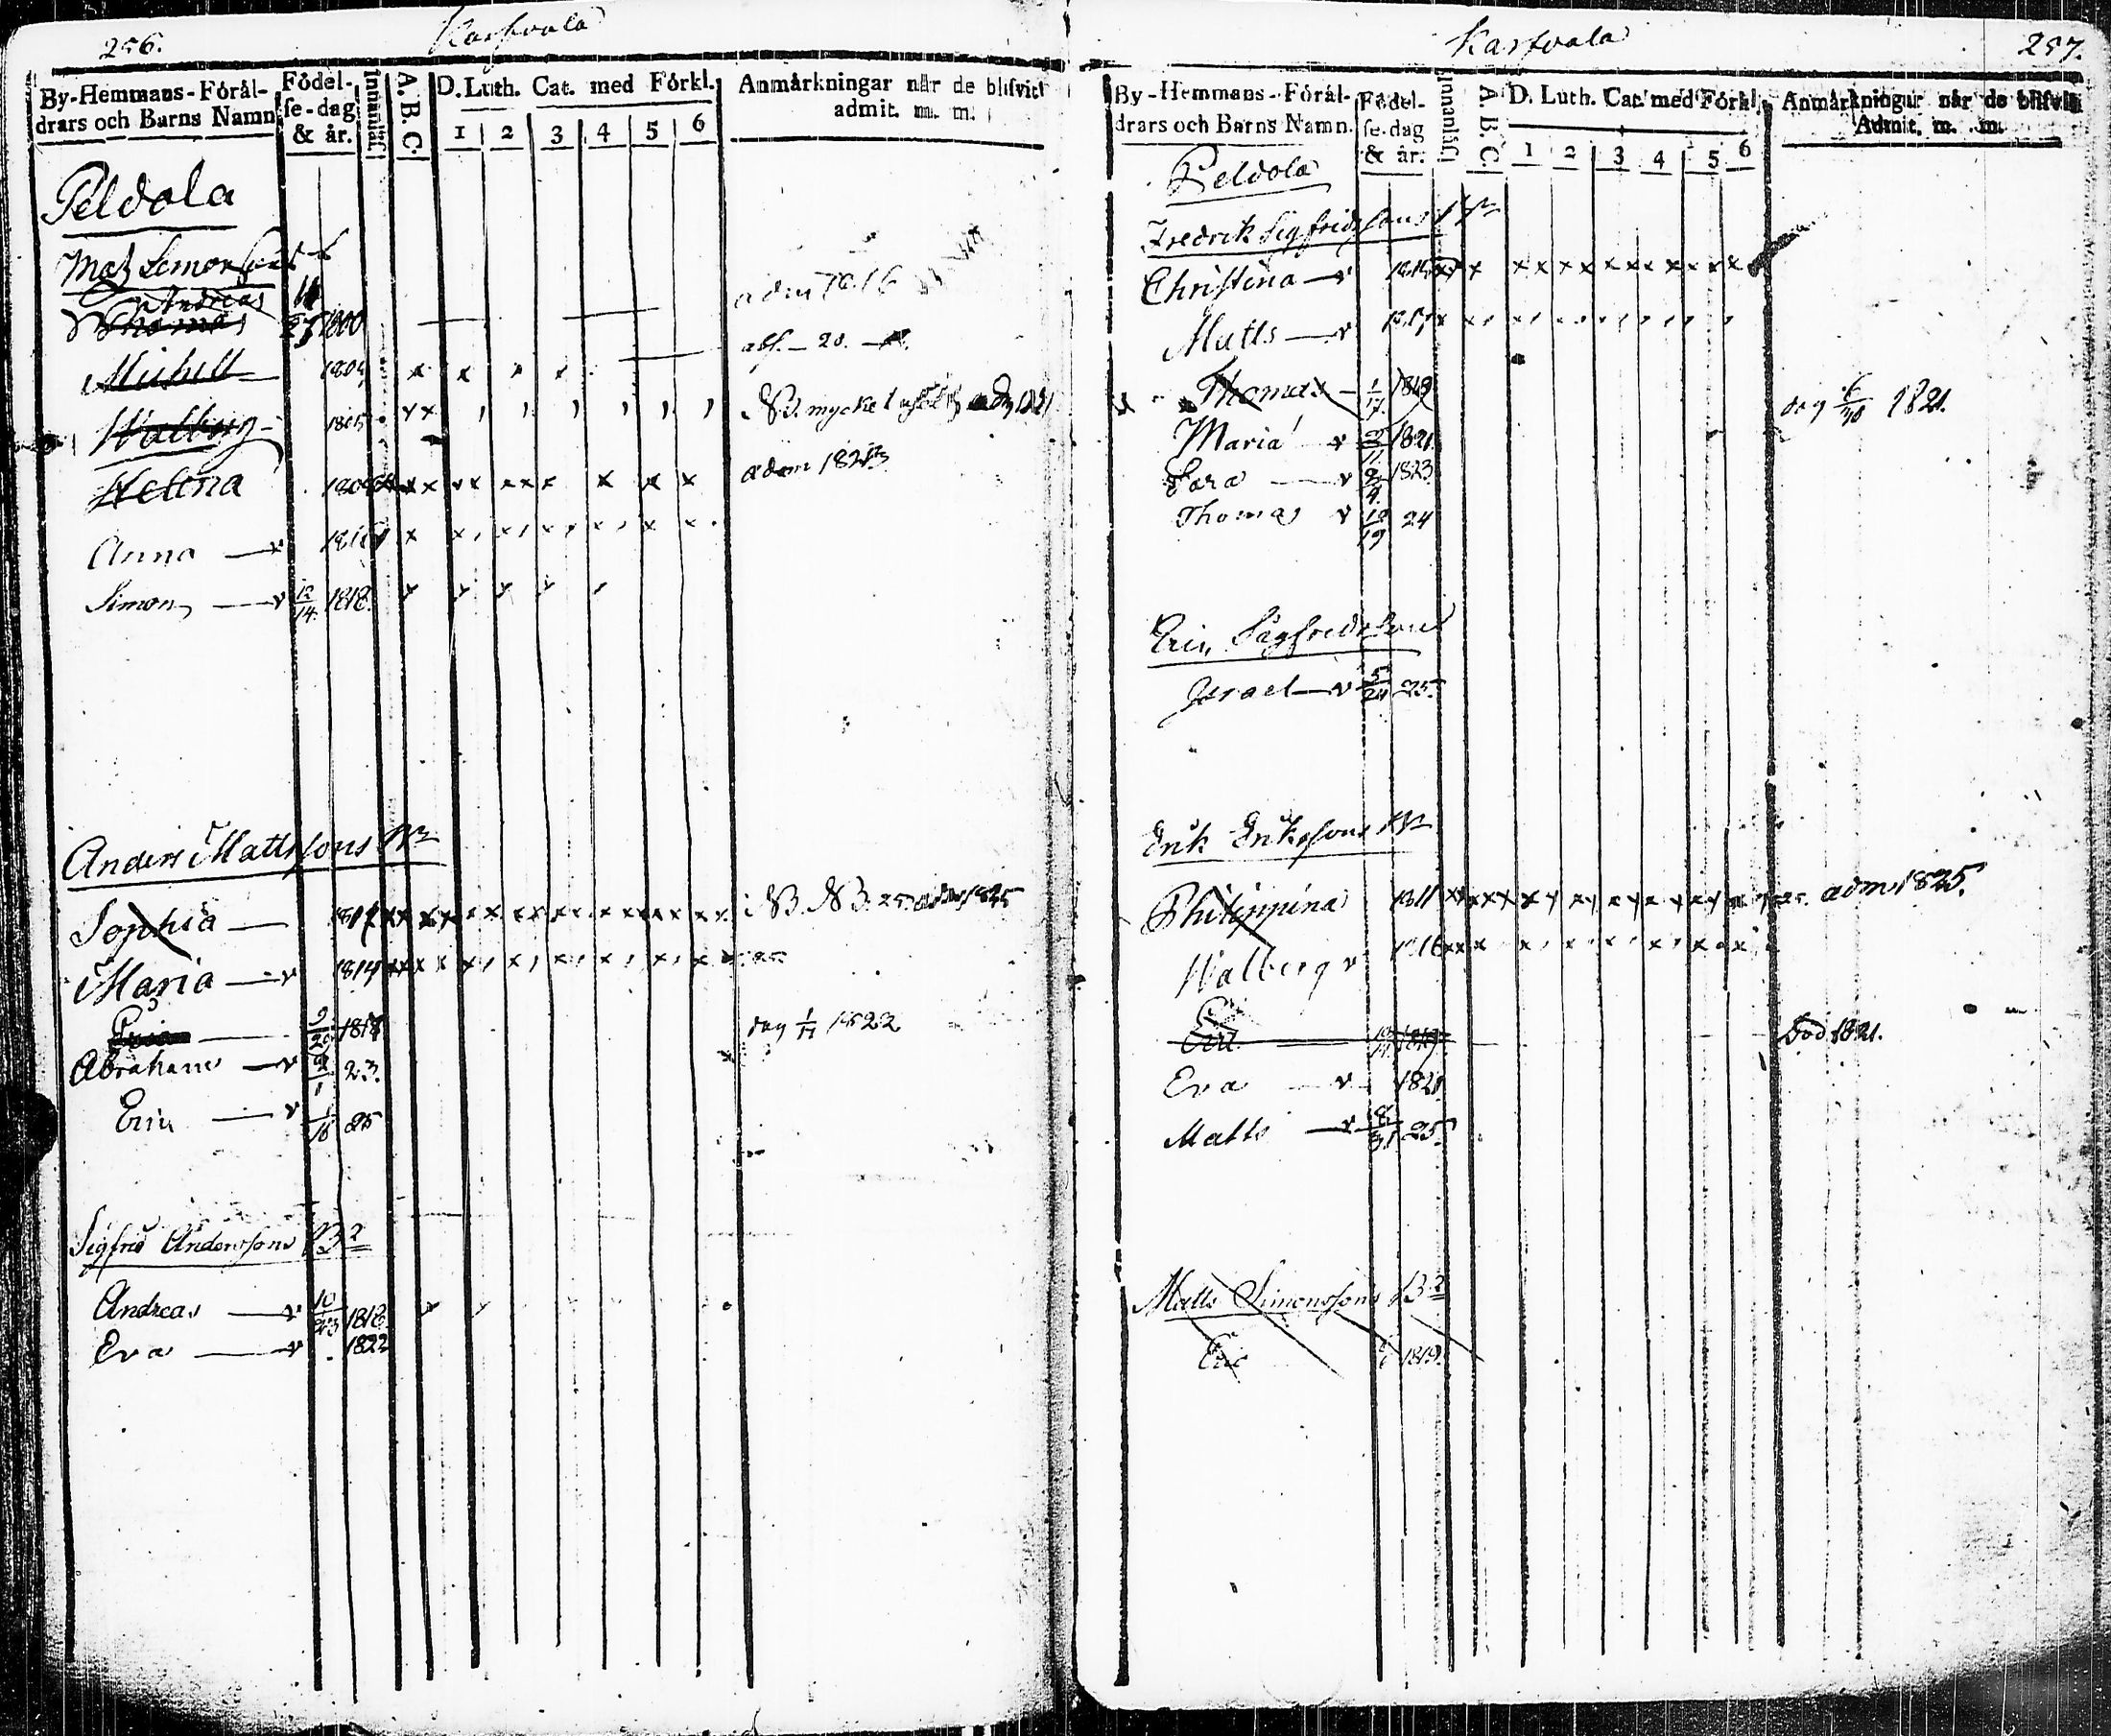 256.
Karfvala
By-Hemmans-Förål-
drars och Barns Namn
Födel-
se-dag
& år.
Innanläs.
A. B. C.
D. Luth. Cat. med Förkl.
1 2 3 4 5 6
Anmårkningar når de blifvit
admit. m. m.
Peldola
Matz Simonsons
Andreas
Thomas 27 1800 adm 1816
Michell 1804 x x x x abs. — 20.
Walborg 1805 NB. mycket
Helena 1808 x x x x x x x x x x adm 1823
Anna — v 1816 x x x x x x x
Simon — v 12/14 1818.
Anders Mattssons Bn
Sophia — x x x x x x x x x x x x NB. NB. 25. adm 1825
Maria — v 1814 x x x x x x x x x x 25
Eric — 9/20 1818 dög 1/11 1822
Abraham — v 2/1 23.
Eric — v 1/16 25
Sigfrid Anderssons B2
Andreas — v 10/23 1818
Eva — v 1822
Karfvala
257.
By-Hemmans-Förål-
drars och Barns Namn.
Födel-
se-dag
& år.
Innanläs.
A. B. C.
D. Luth. Cat. med Förkl.
1 2 3 4 5 6
Anmårkningar når de blifvit
Admit. m. m.
Peldola
Fredrik Sigfridssons Bn
Christina — v 1815 x x x x x x x x x x x x x
Matts — v 1817 x x
Thomas — 1/17 1819 dög 6/10 1821.
Maria v 2/11 1821.
Sara — v 2/4 1823
Thomas v 10/19 24
Eric Sigfridssons
Israel — v 5/24 25.
Erik Erikssons Bn
Philippina 1811 x x x x x y x y x y x y x y 25. adm 1825.
Walborg v 1816 x x x x x x x x x
Eric 1819 Död 1821.
Eva — v 1821
Matts — v 8/31 25.
Matts Simonssons B2
Eric 1819.